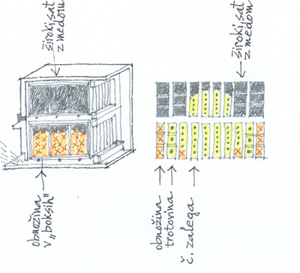 široki sat
z medom
široki sat
z medom
obnožina
v "boksih"
obnožina
trotovina
č. zalega